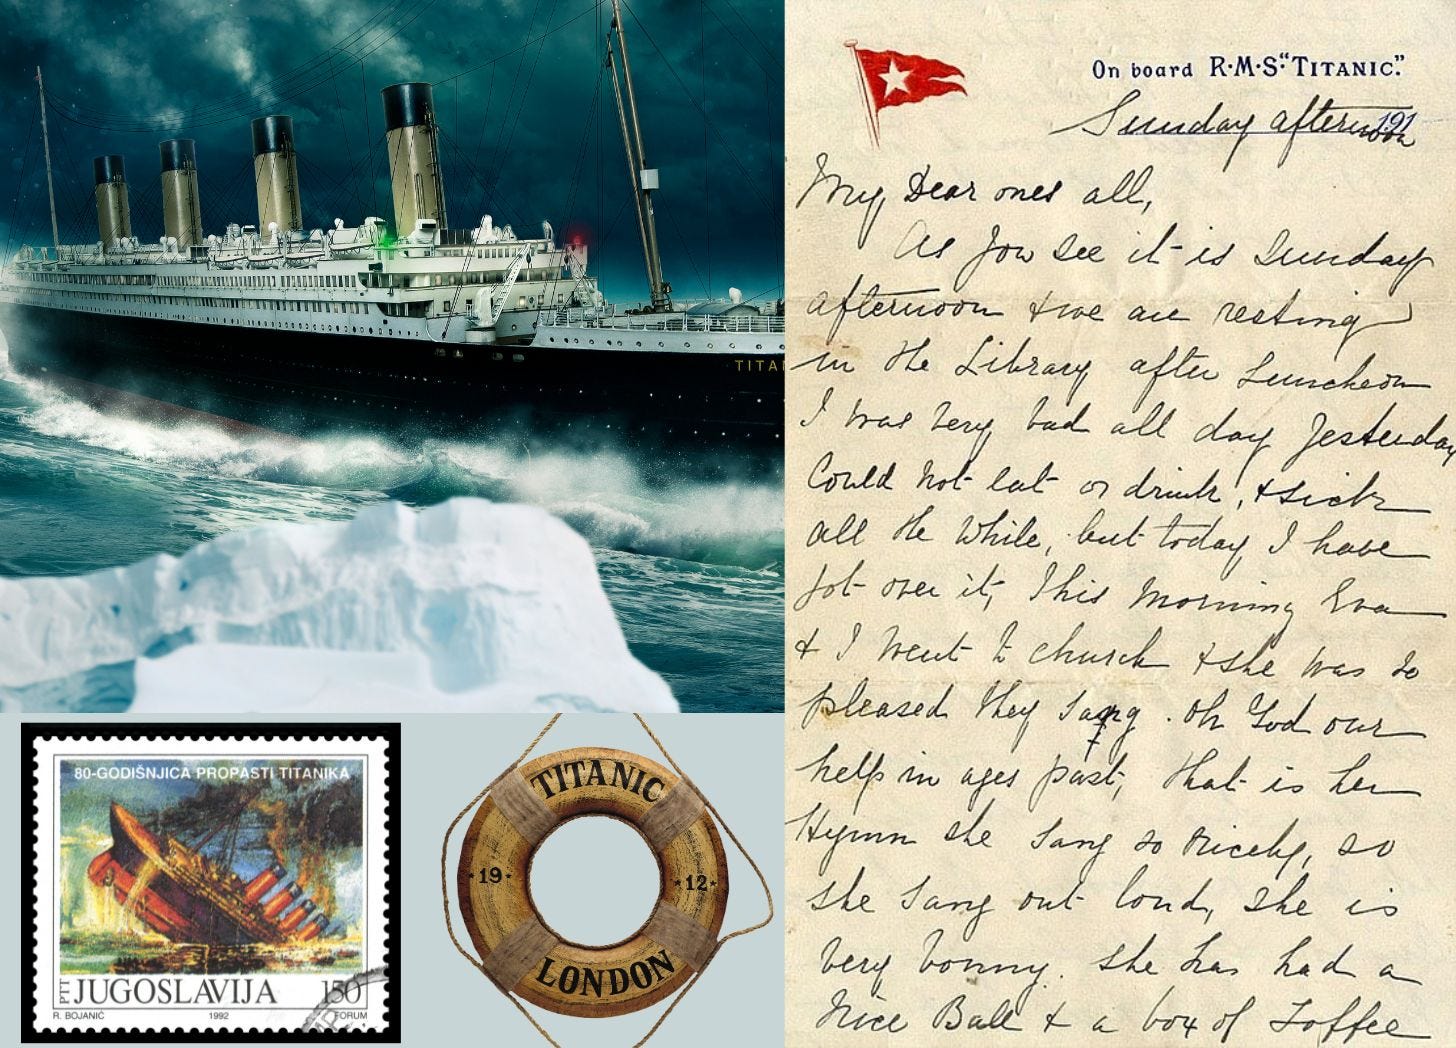 TITA
On board R·M·S·"TITANIC."
191
Sunday afternoon
My Dear ones all,
As you see it is Sunday
afternoon & we are resting
in the Library after Luncheon
I was very bad all day Yesterday
Could not eat or drink, & sick
all the While, but today I have
got over it, This Morning Eva
& I went to church & she was so
pleased they sang. Oh God our
help in ages past, that is her
Hymn she sang so Nicely, so
she sang out loud, She is
very bonny. She has had a
Nice Ball & a box of Toffee
80-GODIŠNJICA PROPASTI TITANIKA
PTT JUGOSLAVIJA 150
R. BOJANIĆ 1992 FORUM
TITANIC
19 12
LONDON